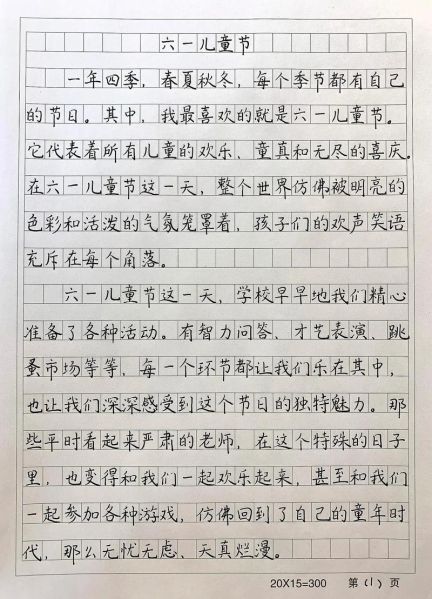 六一儿童节
一年四季，春夏秋冬，每个季节都有自己
的节日。其中，我最喜欢的就是六一儿童节。
它代表着所有儿童的欢乐、童真和无尽的喜庆。
在六一儿童节这一天，整个世界仿佛被明亮的
色彩和活泼的气氛笼罩着，孩子们的欢声笑语
充斥在每个角落。
六一儿童节这一天，学校早早地我们精心
准备了各种活动。有智力问答、才艺表演、跳
蚤市场等等，每一个环节都让我们乐在其中，
也让我们深深感受到这个节日的独特魅力。那
些平时看起来严肃的老师，在这个特殊的日子
里，也变得和我们一起欢乐起来，甚至和我们
一起参加各种游戏，仿佛回到了自己的童年时
代，那么无忧无虑、天真烂漫。
20X15=300 第(1)页